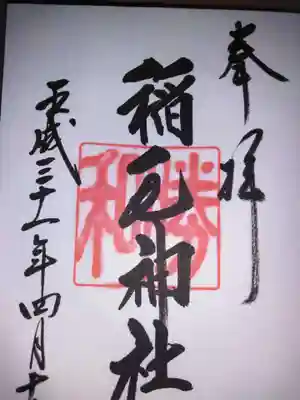 奉拝
稲毛神社
勝和
平成三十一年四月十